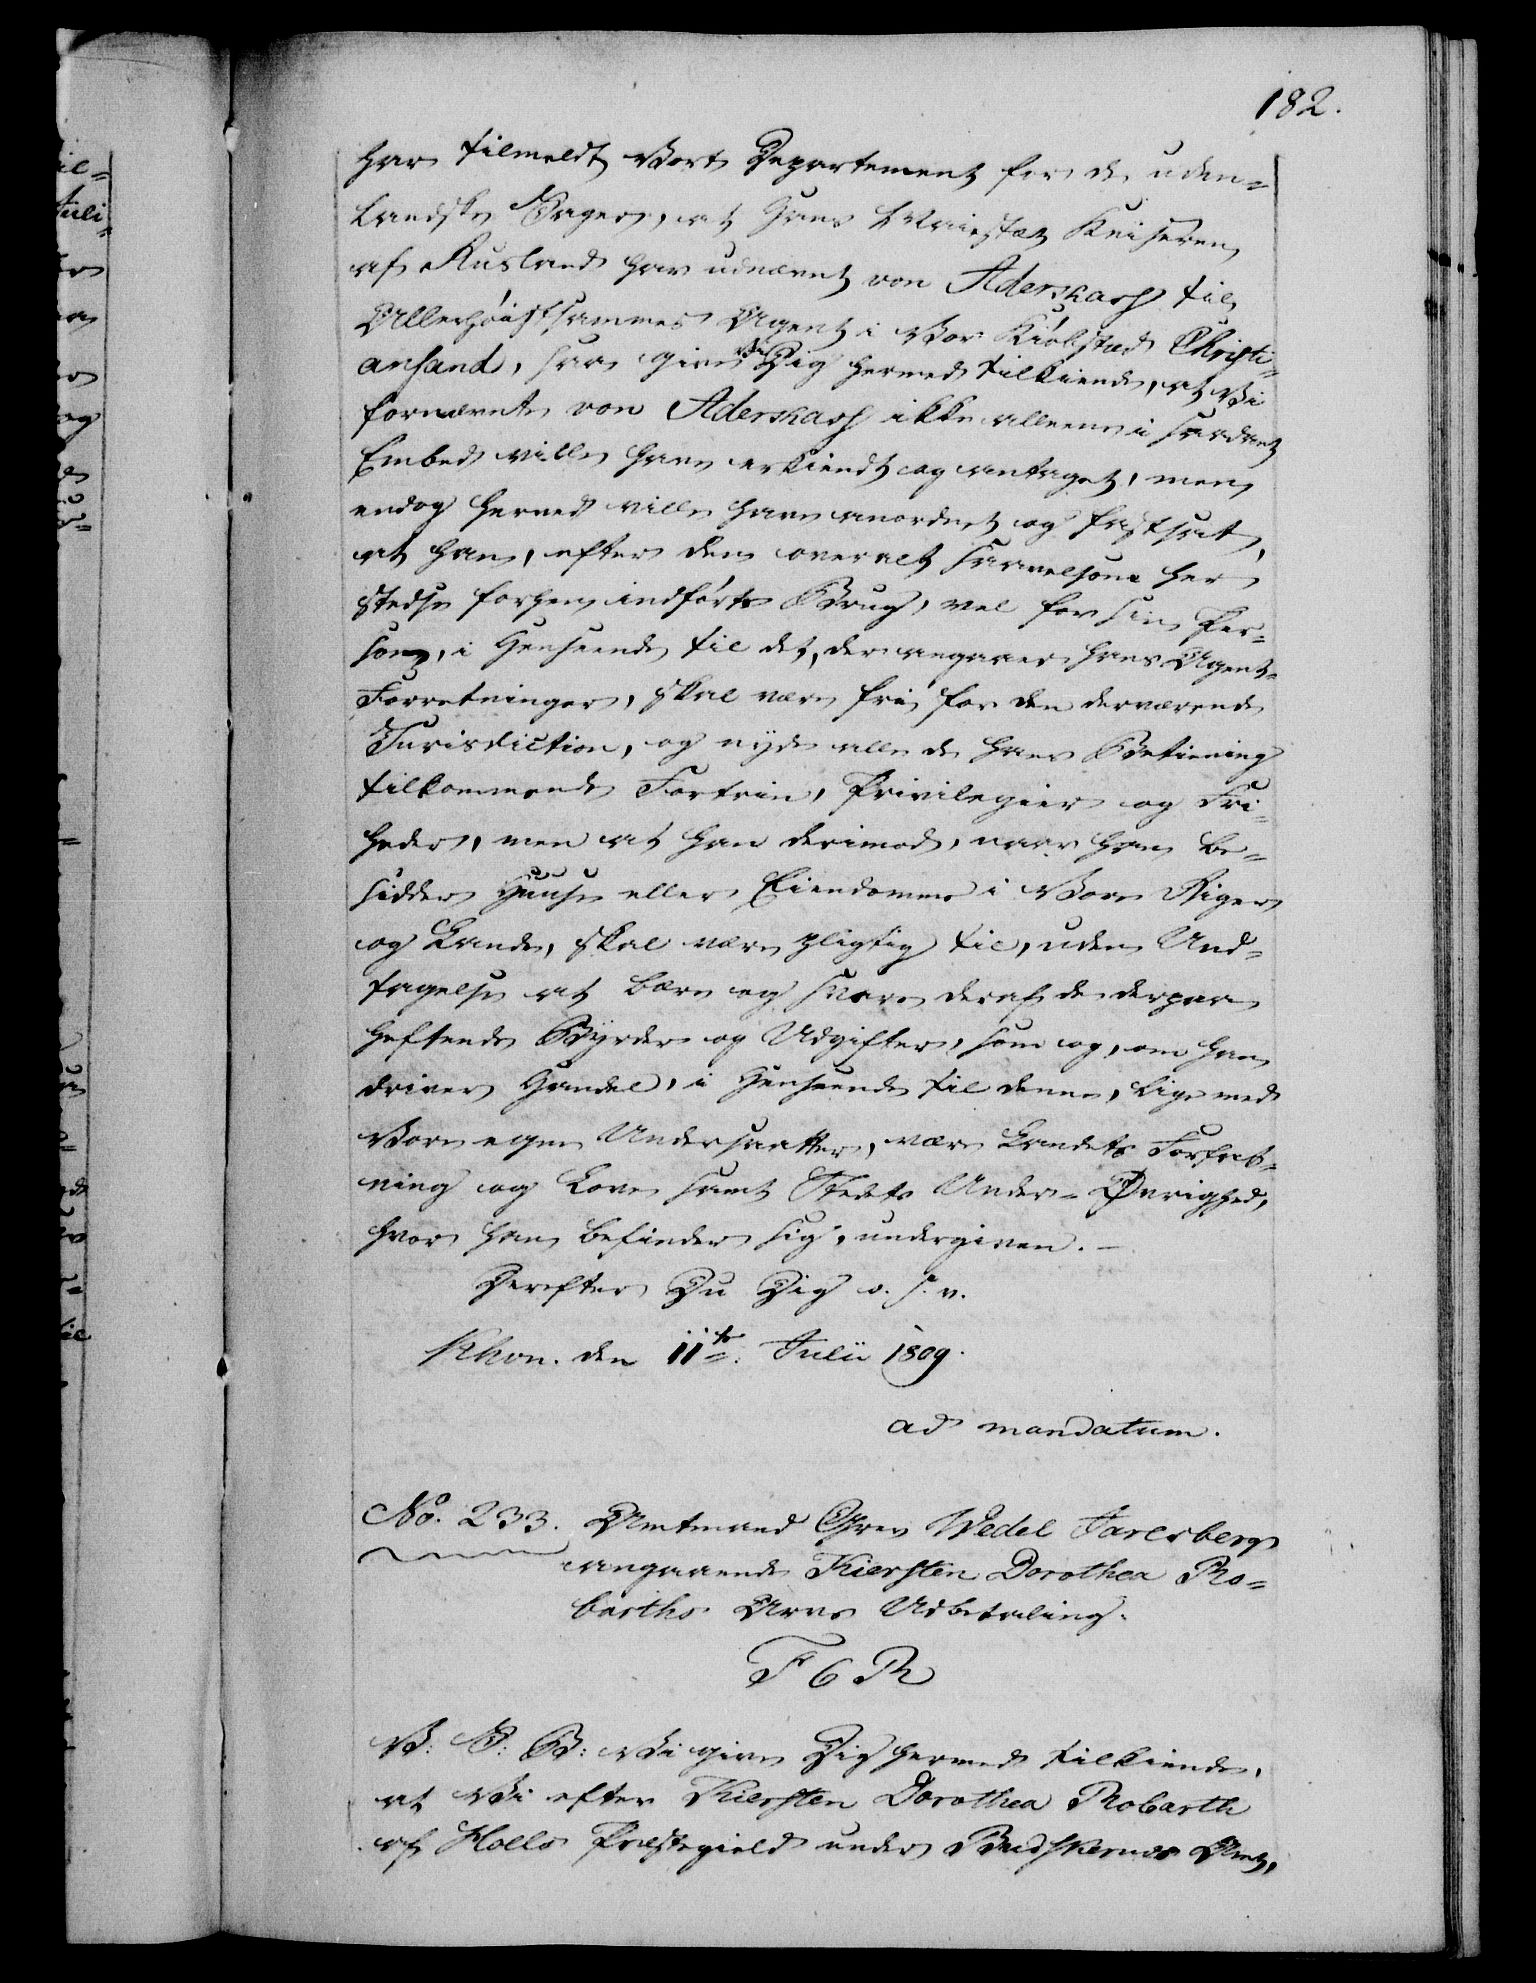 182.
har tilmeldt Vort Departement for de uden=
landske Sager, at Hans Maiestæt Keiseren
af Rusland har udnævnt von Aderskass til
Allerhøistsammes Agent i Vor Kiøbstæd Christi=
ansand, saa give Vi Dig hermed tilkiende, at Vi
fornævnte von Aderskass ikke alleene i saadant
Embed ville have erkiendt og antaget, men
endog herved ville have anordnet og fastsat,
at han, efter den overalt saavelsom her
stedse forhen indførte Brug, vel for sin Per=
son, i Henseende til det, der angaaer hans Agent=
Forretninger, skal være fri for den derværende
Jurisdiction, og nyde alle de hans Betiening
tilkommende Fortrin, Privilegier og Fri=
heder, men at han derimod, naar han be=
sidder Huuse eller Eiendomme i Vore Riger
og Lande, skal være pligtig til, uden Und=
tagelse at bære og svare deraf de derpaa
heftende Byrder og Udgifter, som og, om han
driver Handel, i Henseende til denne, lige med
Vore egne Undersaatter, være Landets Forfat=
ning og Love samt Stedets Under=Øvrighed,
hvor han befinder sig, undergiven. –
Derefter Du Dig o. s. v.
Khvn. den 11te. Julii 1809.
ad mandatum.
No. 233. Amtmand Grev Wedel Jarlsberg
angaaende Kiersten Dorothea Ro=
barths Arvs Udbetaling.
F 6 R
V: G: B: Vi give Dig hermed tilkiende,
at Vi efter Kiersten Dorothea Robarth
af Holls Præstegield under Budskeruds Amt,